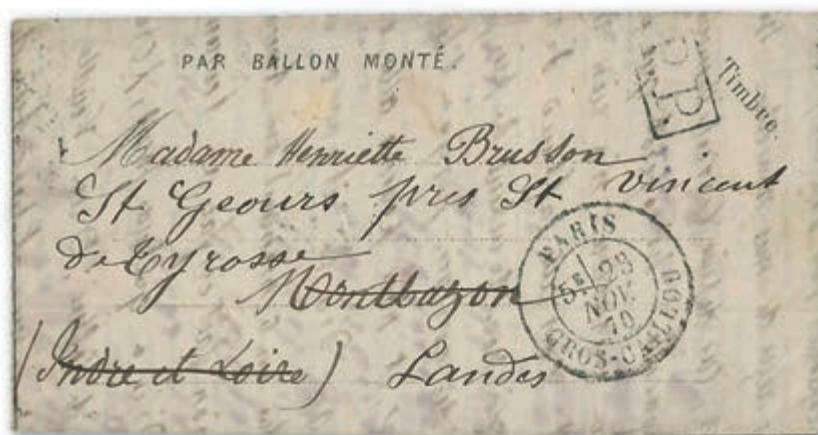 PAR BALLON MONTÉ.
P.P.
Timbre.
Madame Henriette Brusson
St Geours près St vincent
de Tyrosse
Montbazon
(Indre et Loire) Landes
PARIS
5E 28
NOV.
70
GROS-CAILLOU